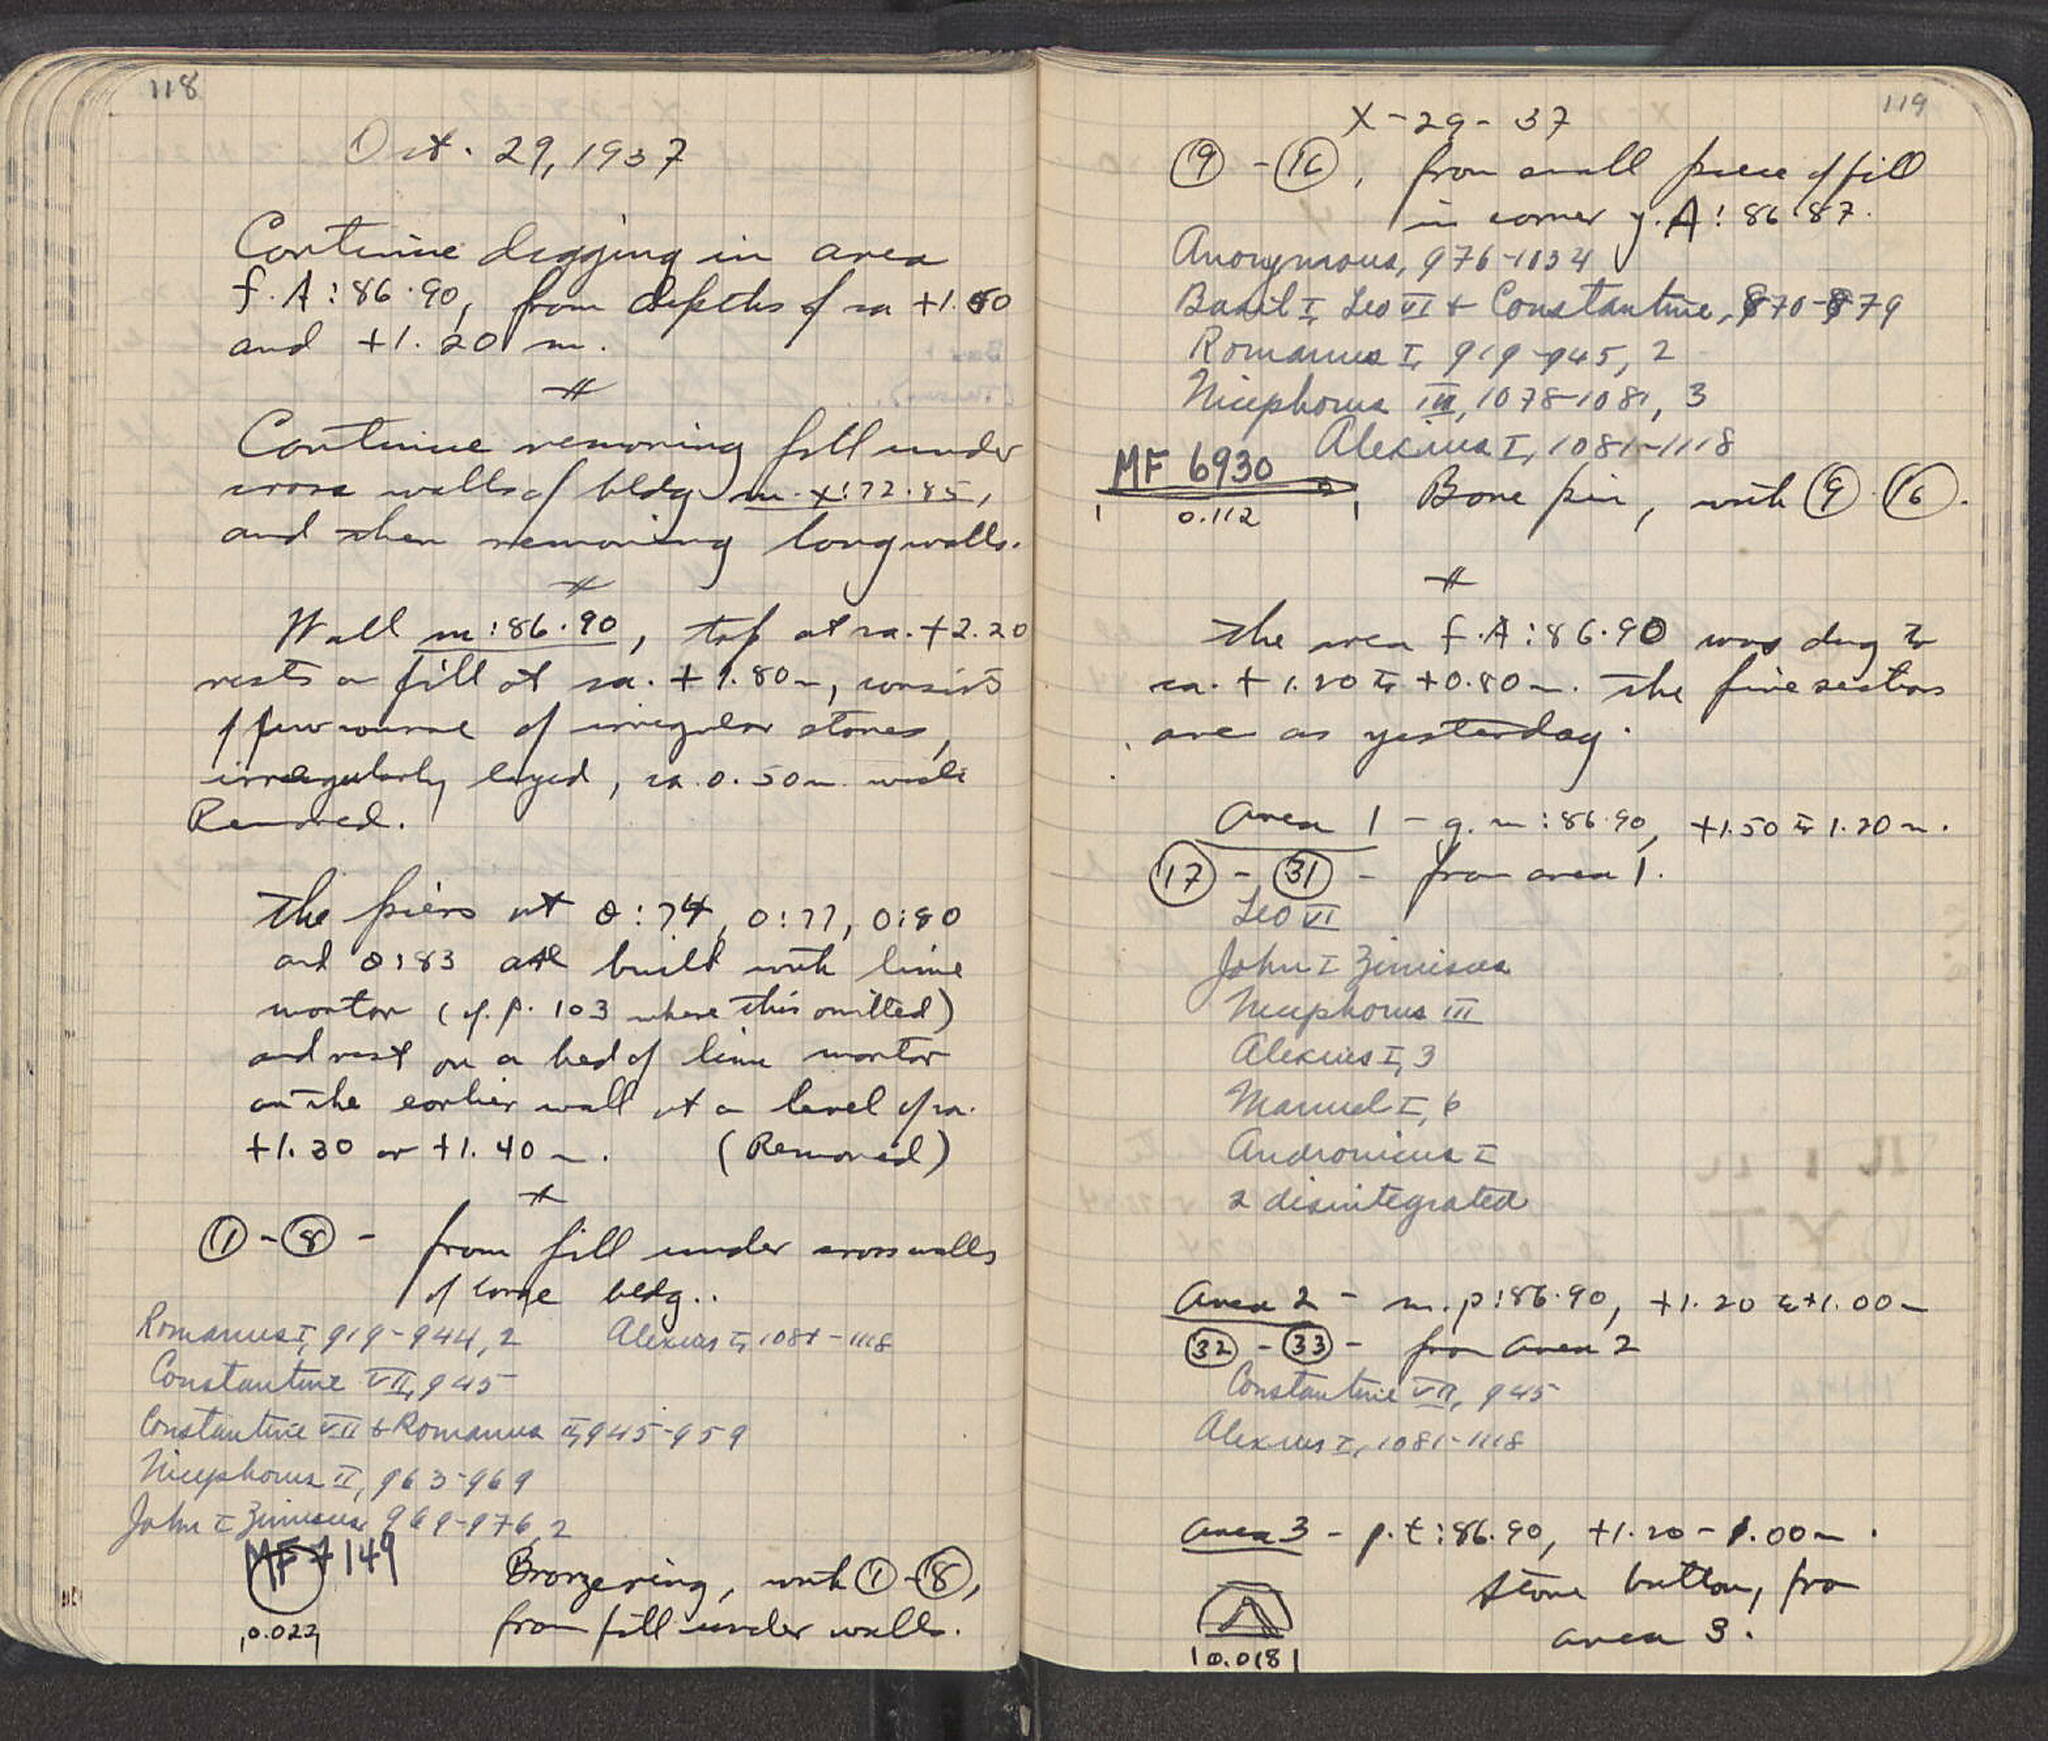 118
Oct. 29, 1937
Continue digging in area
f.A:86.90, from depths of ca +1.50
and +1.20 m.
Continue removing fill under
cross walls of bldg m-x:72.85,
and then removing long walls.
Wall m:86.90, top at ca. +2.20
rests on fill at ca. +1.80m, consists
of few course of irregular stones,
irregularly layed, ca. 0.50m wide
Removed.
The piers at O:74, O:77, O:80
and O:83 are built with lime
mortar (cf. p. 103 where this omitted)
and rest on a bed of lime mortar
on the earlier wall at a level of ca.
+1.30 or +1.40 m. (Removed)
1 - 8 - from fill under cross walls
of large bldg..
Romanus I, 919-944, 2 Alexius I, 1081-1118
Constantine VII, 945
Constantine VII & Romanus II, 945-959
Nicephorus II, 963-969
John I Zimisces, 969-976, 2
MF 7149
0.022
Bronze ring, with 1 - 8,
from fill under walls.
119
X-29-37
9 - 16, from small piece of fill
in corner y.A:86.87.
Anonymous, 976-1034
Basil I, Leo VI & Constantine, 870-879
Romanus I, 919-945, 2
Nicephorus III, 1078-1081, 3
Alexius I, 1081-1118
MF 6930
0.112
Bone pin, with 9 - 16.
The area f.A:86.90 was dug to
ca. +1.20 to +0.80m. The five sections
are as yesterday.
Area 1 - g.m:86.90, +1.50 to 1.20m.
17 - 31 - from area 1.
Leo VI
John I Zimisces
Nicephorus III
Alexius I, 3
Manuel I, 6
Andronicus I
2 disintegrated
Area 2 - m.p:86.90, +1.20 to +1.00m
32 - 33 - from area 2
Constantine VII, 945
Alexius I, 1081-1118
Area 3 - p.t:86.90, +1.20-1.00m.
0.018
Stone button, from
area 3.